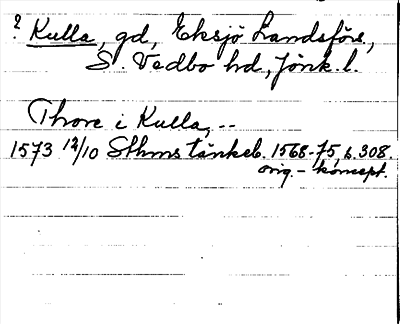 ? Kulla, gd, Eksjö Landsförs,
S. Vedbo hd, Jönk. l.
Thore i Kulla, --
1573 12/10 Sthms tänkeb. 1568-75, s. 308.
orig. - koncept.